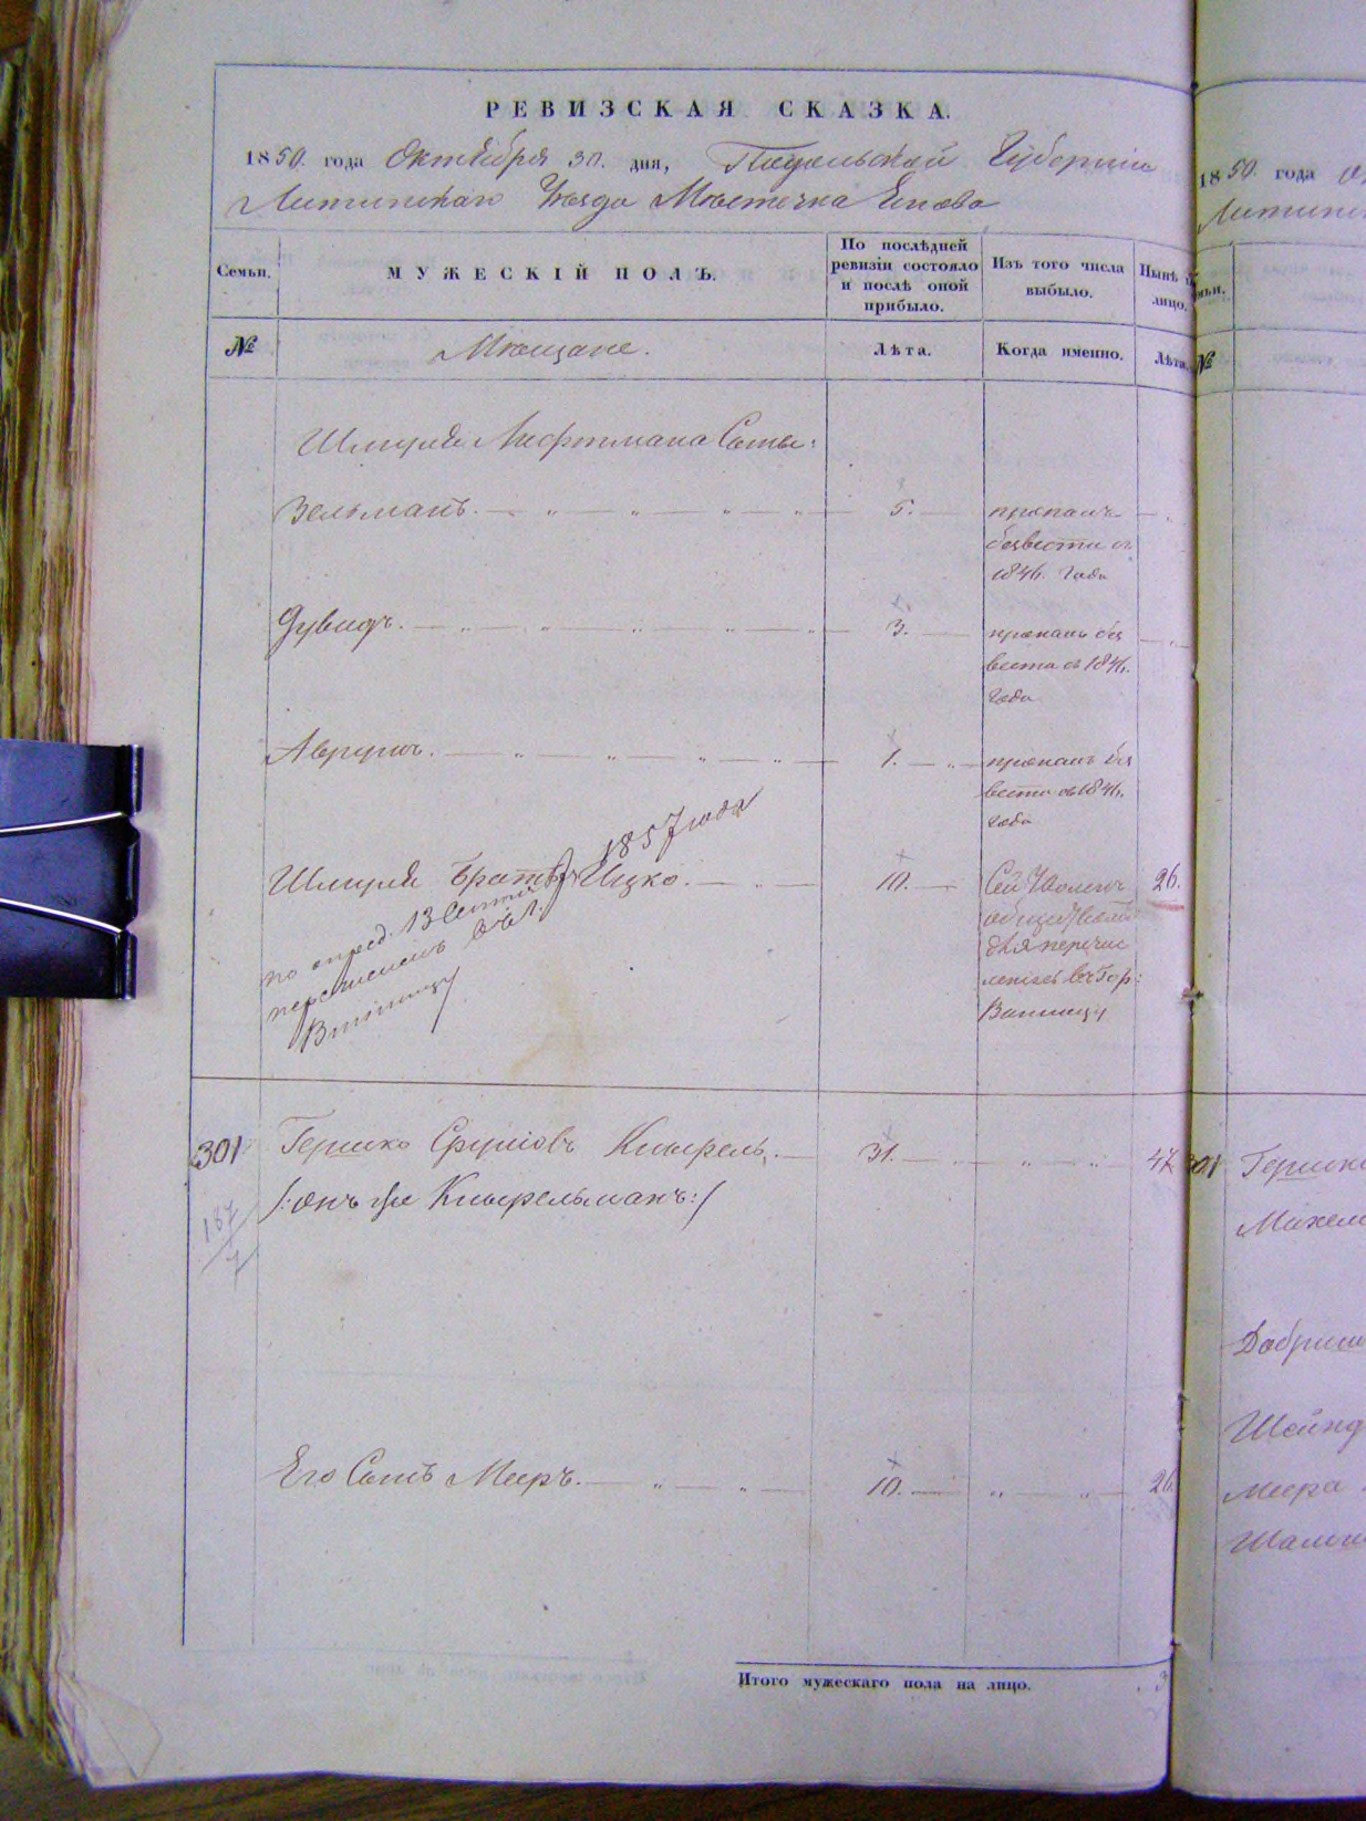 РЕВИЗСКАЯ СКАЗКА.
1850. года Октября 30. дня, Подольской Губернии
Литинскаго Уезда Местечка Янова
Семьи. МУЖЕСКІЙ ПОЛЪ. По послѣдней ревизіи состояло и послѣ оной прибыло. Изъ того числа выбыло. Нынѣ лицо.
№ Мещане. Лѣта. Когда именно. Лѣта.
Шмуля Лифтмана Сыны:
Зельманъ. 5. пропалъ
безвести съ
1846. Года
Дувидъ. 3. пропалъ без
вести съ 1846.
Года
Аврумъ. 1. пропалъ без
вести съ 1846.
Года
1857 года
Шмуля Братъ Ицко. 10. Сей 26.
по опред. 13
перечисленъ
Винницу
для перечис
въ Гор:
Винницу
301 Гершко Сруліовъ Кнырель. 31. 47
/:онъ же Кнырельманъ:/
187
7
Его Сынъ Мееръ. 10. 26.
Итого мужескаго пола на лицо. 3
1850. года
Литин
№
301 Гершк
Михел
Добриш
Шейнд
Меера